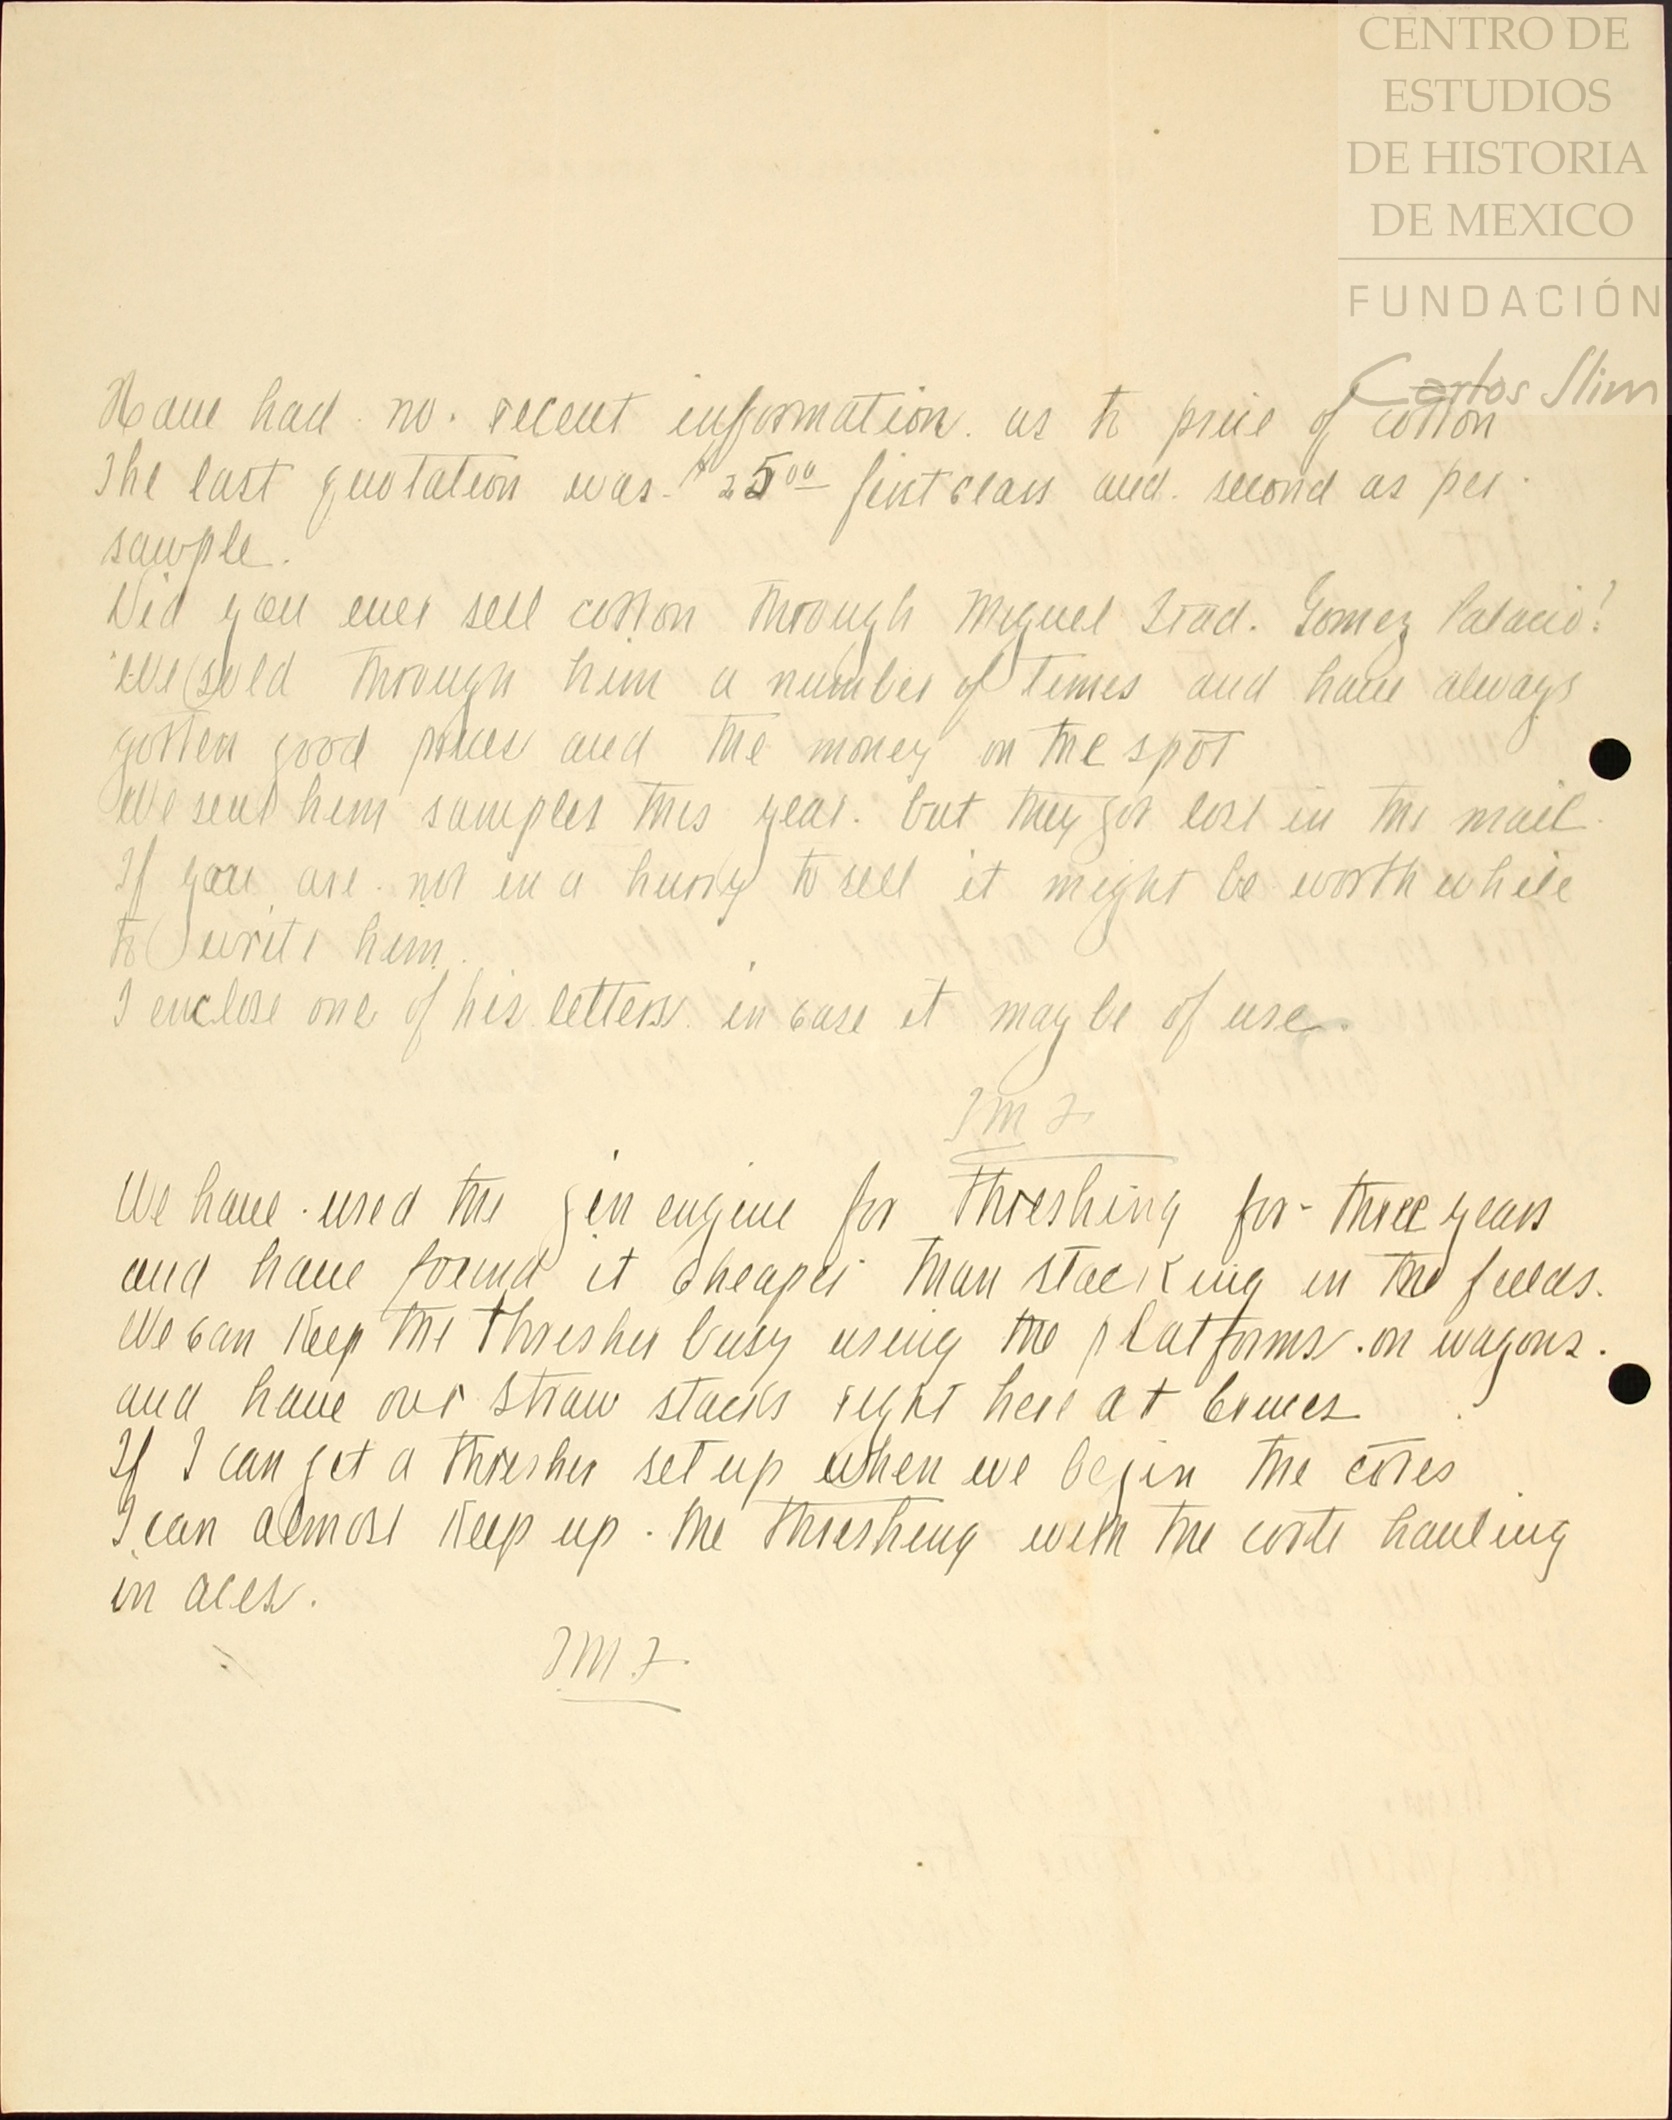 CENTRO DE
ESTUDIOS
DE HISTORIA
DE MEXICO
FUNDACIÓN
Carlos Slim
Have had no. recent information. as to price of cotton
The last quotation was $25 00 first class and second as per
sample.
Did you ever sell cotton through Miguel Gomez Palacio?
We sold through him a number of times and have always
gotten good prices and the money on the spot
We sent him samples this year. but they got lost in the mail.
If you are not in a hurry to sell it might be worth while
to write him.
I enclose one of his letters in case it may be of use.
J M F.
We have used the gin engine for threshing for three years
and have found it cheaper than stacking in the fields.
We can keep the thresher busy using the platforms on wagons.
and have our straw stacks right here at
If I can get a thresher set up when we begin the
I can almost keep up the threshing with the hauling
in
J M F.